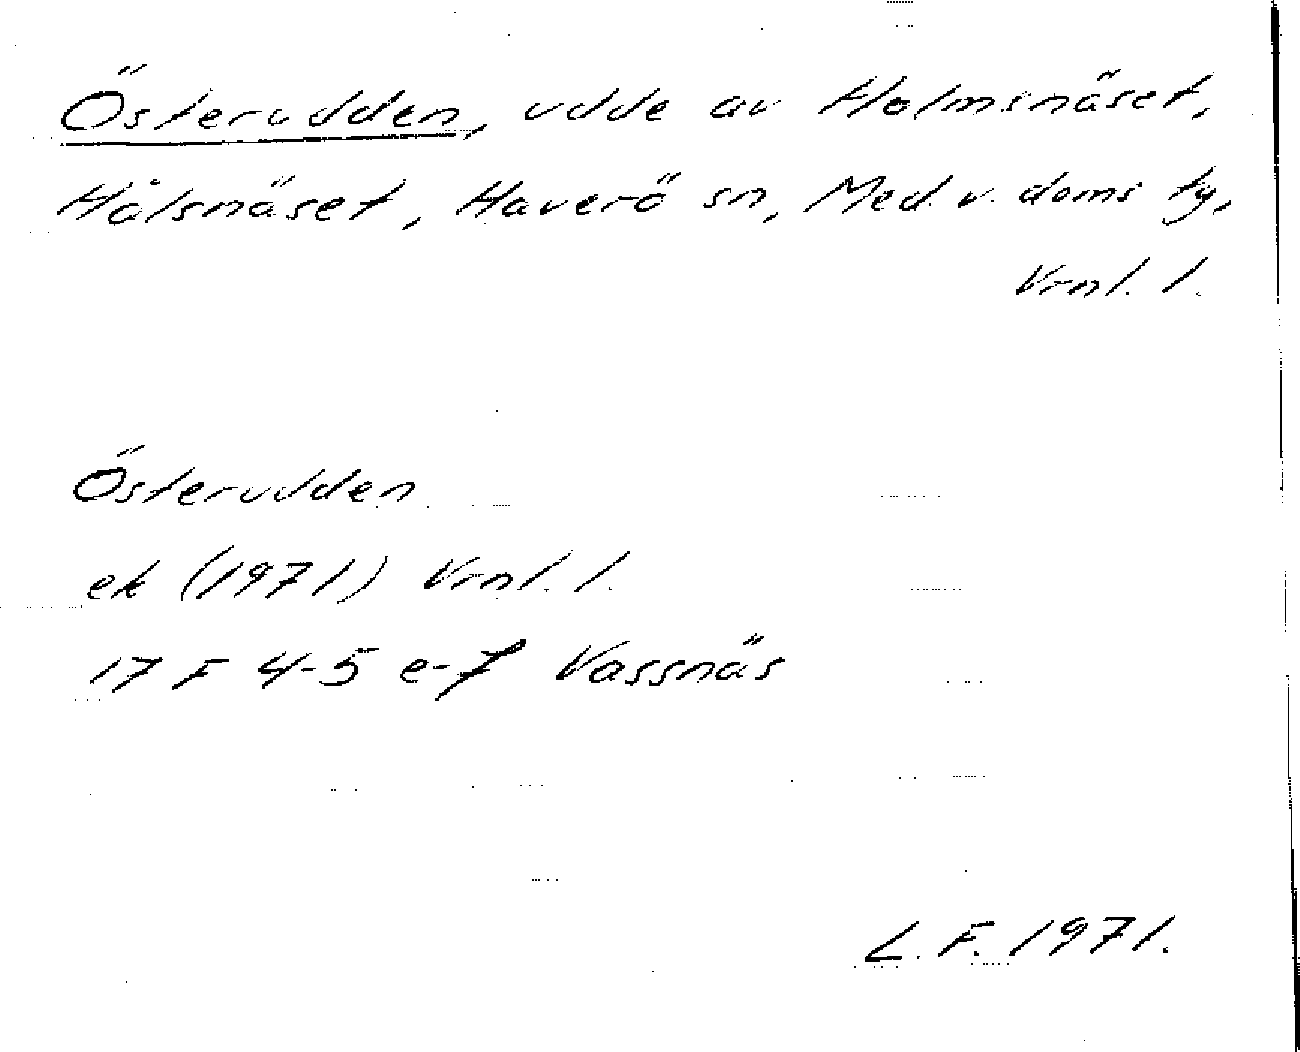 Österudden, udde av Holmsnäset,
Hålsnäset, Haverö sn, Med. v. doms tg,
Vrnl. l.
Österudden
ek (1971) Vrnl. l.
17 F 4-5 e-f Vassnäs
L. F. 1971.